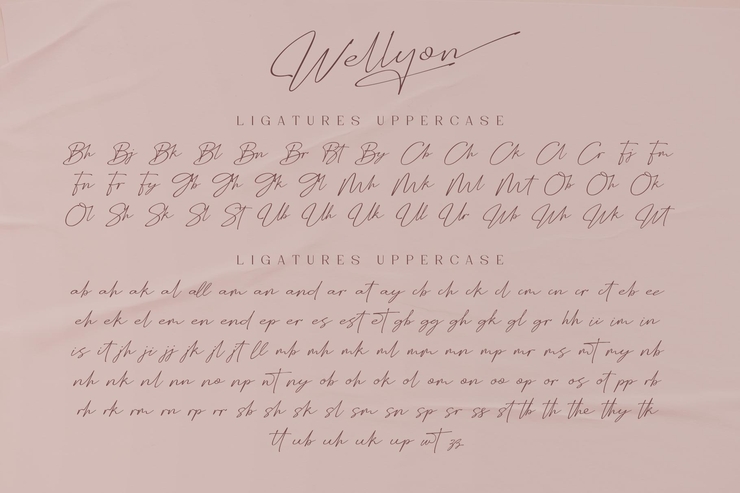 Wellyon
LIGATURES UPPERCASE
Bh Bj Bk Bl Bn Br Bt By Cb Ch Ck Cl Cr Fj Fm
Fn Fr Fy Gb Gh Gk Gl Mh Mk Ml Mt Ob Oh Ok
Ol Sh Sk Sl St Ub Uh Uk Ul Ur Wb Wh Wk Wt
LIGATURES UPPERCASE
ab ah ak al all am an and ar at ay cb ch ck cl cm cn cr ct eb ee
eh ek el em en end ep er es est et gb gg gh gk gl gr hh ii im in
is it jh ji jj jk jl jt ll mb mh mk ml mm mn mp mr ms mt my nb
nh nk nl nn no np nt ny ob oh ok ol om on oo op or os ot pp rb
rh rk rm rn rp rr sb sh sk sl sm sn sp sr ss st tb th the thy tk
tt ub uh uk up wt zz